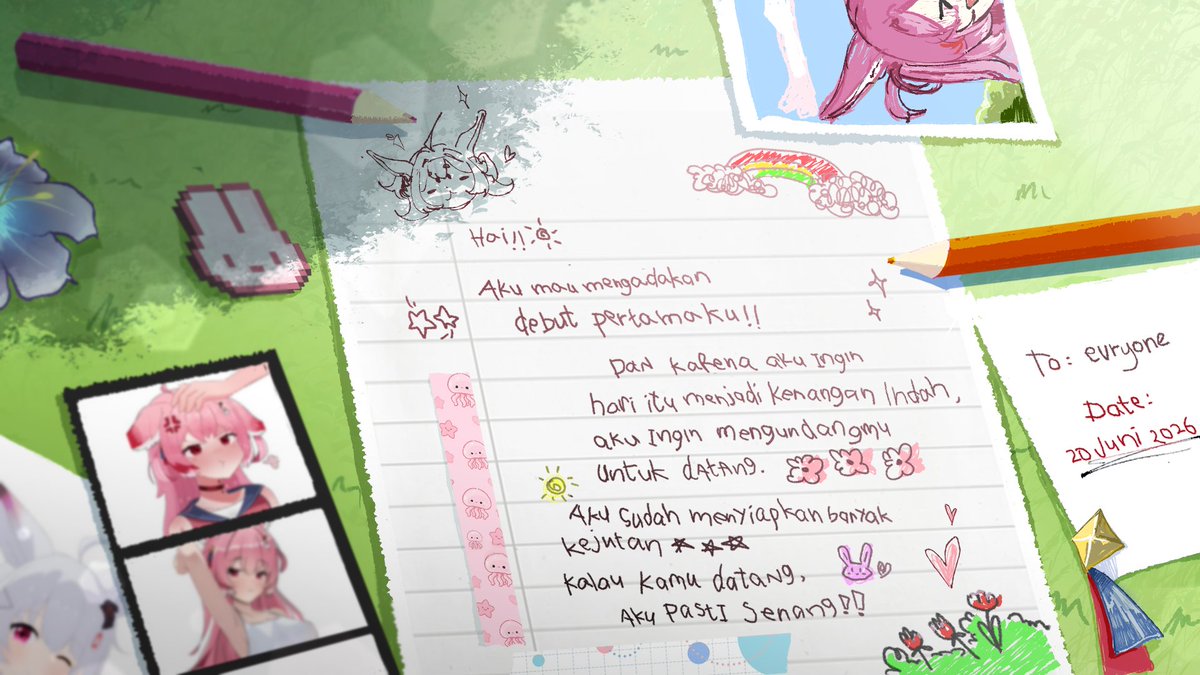 Hai!!
Aku mau mengadakan
debut pertamaku!!
DAN karena aku ingin
hari itu menjadi kenangan Indah,
aku Ingin mengundangmu
untuk datang.
Aku sudah menyiapkan banyak
kejutan
kalau kamu datang,
Aku Pasti senang!!
To: evryone
Date:
20 Juni 2026